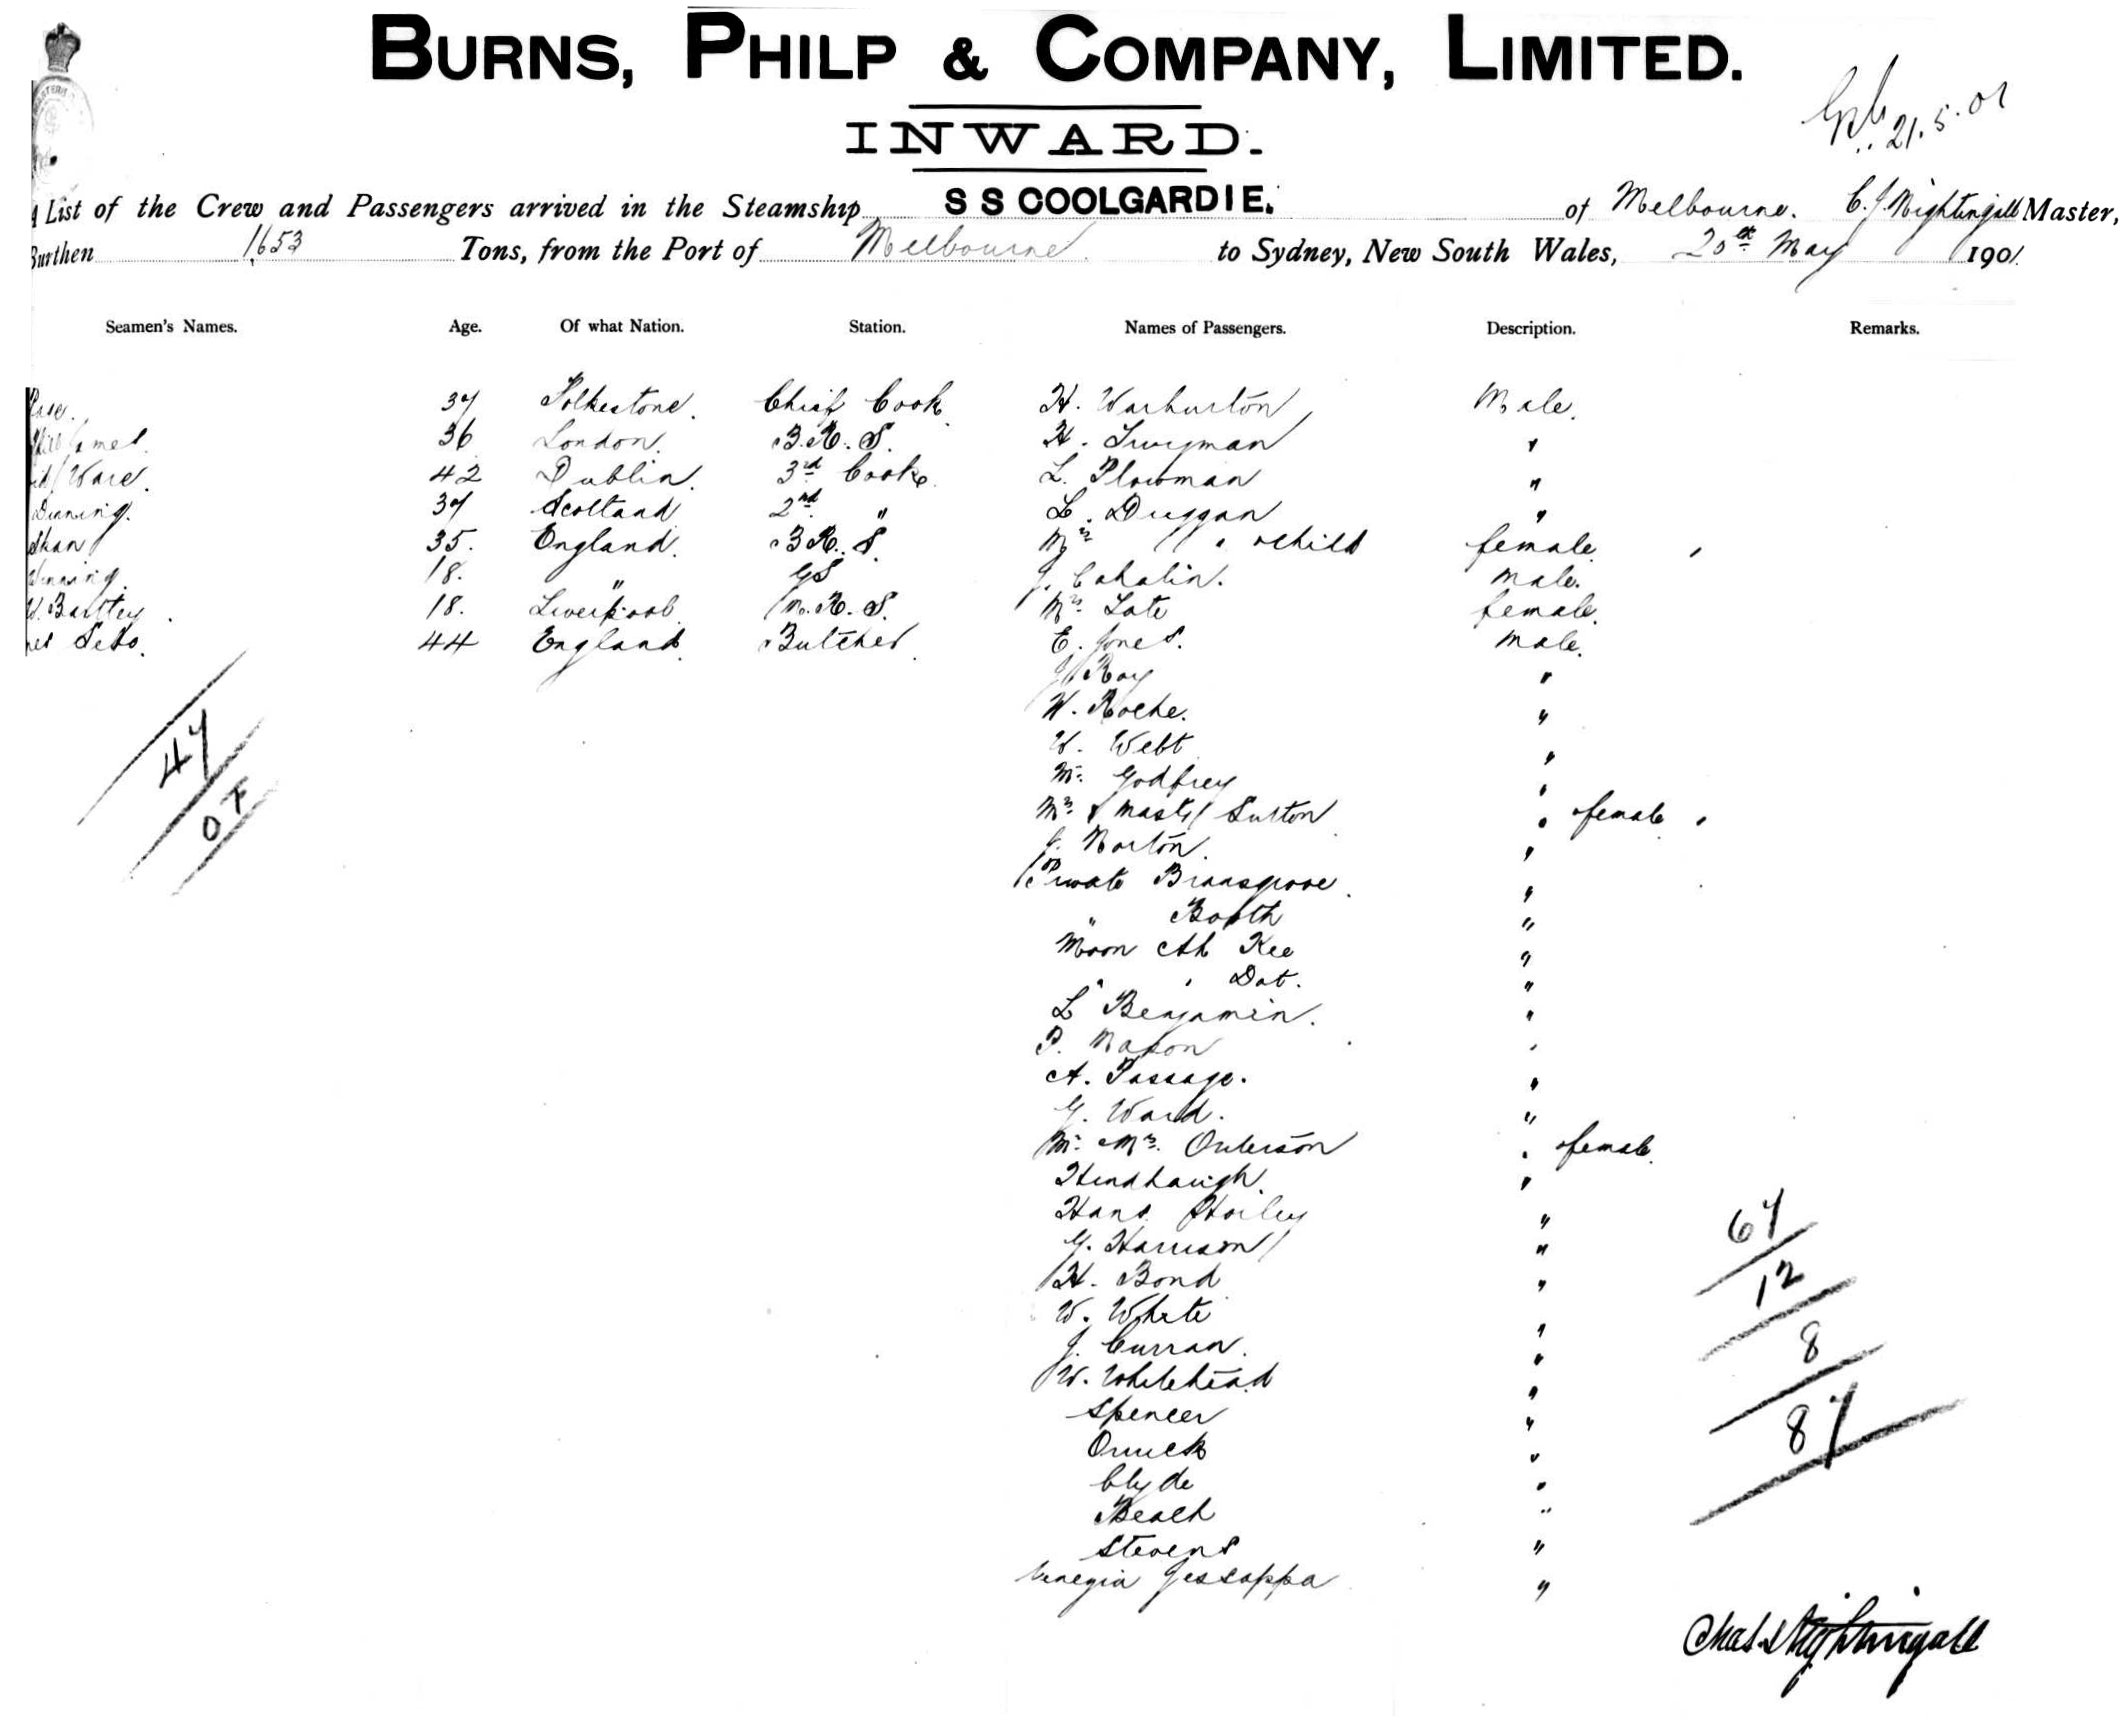 BURNS, PHILP & COMPANY, LIMITED.
INWARD.
21.5.01
List of the Crew and Passengers arrived in the Steamship S S COOLGARDIE. of Melbourne. C. J. Nightingall Master,
Burthen 1653 Tons, from the Port of Melbourne to Sydney, New South Wales, 20th May 1901.
Seamen's Names. Age. Of what Nation. Station. Names of Passengers. Description. Remarks.
37 Folkestone. Chief Cook H. Warburton Male.
36 London. B.R.S. H. Twyman "
Ware. 42 Dublin. 3rd Cook. L. Plowman "
Dinning. 37 Scotland 2nd " L. Duggan "
35. England. B.R.S. Mrs " " child female
18. " GS J. Cahalin. Male.
W. Bartley. 18. Liverpool M.R.S. Mrs Late female.
44 England. Butcher. E. Jones. Male.
J. Roy "
47 W. Roche. "
W. Webt "
Mr. Godfrey "
0 F Mrs & Mastr Sutton " female
J. Norton. "
Private Bransgrove "
" Booth "
Moon Ah Kee "
" " Dat. "
L Benjamin. "
P. Mason "
A. Passage. "
G. Ward. "
Mr. Mrs. Outerson " female.
Hindhaugh. "
Hans Hoiley "
67
G. Harrison "
H. Bond "
12
W. White "
J. Curran. "
8
W. Whitehead "
Spencer "
87
Orrick "
Clyde "
Beach "
Stevens "
Gessoppa "
Chas. J. Nightingall